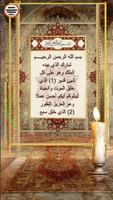 بسم الله الرحمن الرحيم
تبارك الذي بيده
الملك وهو على كل
شيء قدير (1) الذي
خلق الموت والحياة
ليبلوكم أيكم أحسن عملا
وهو العزيز الغفور
(2) الذي خلق سبع